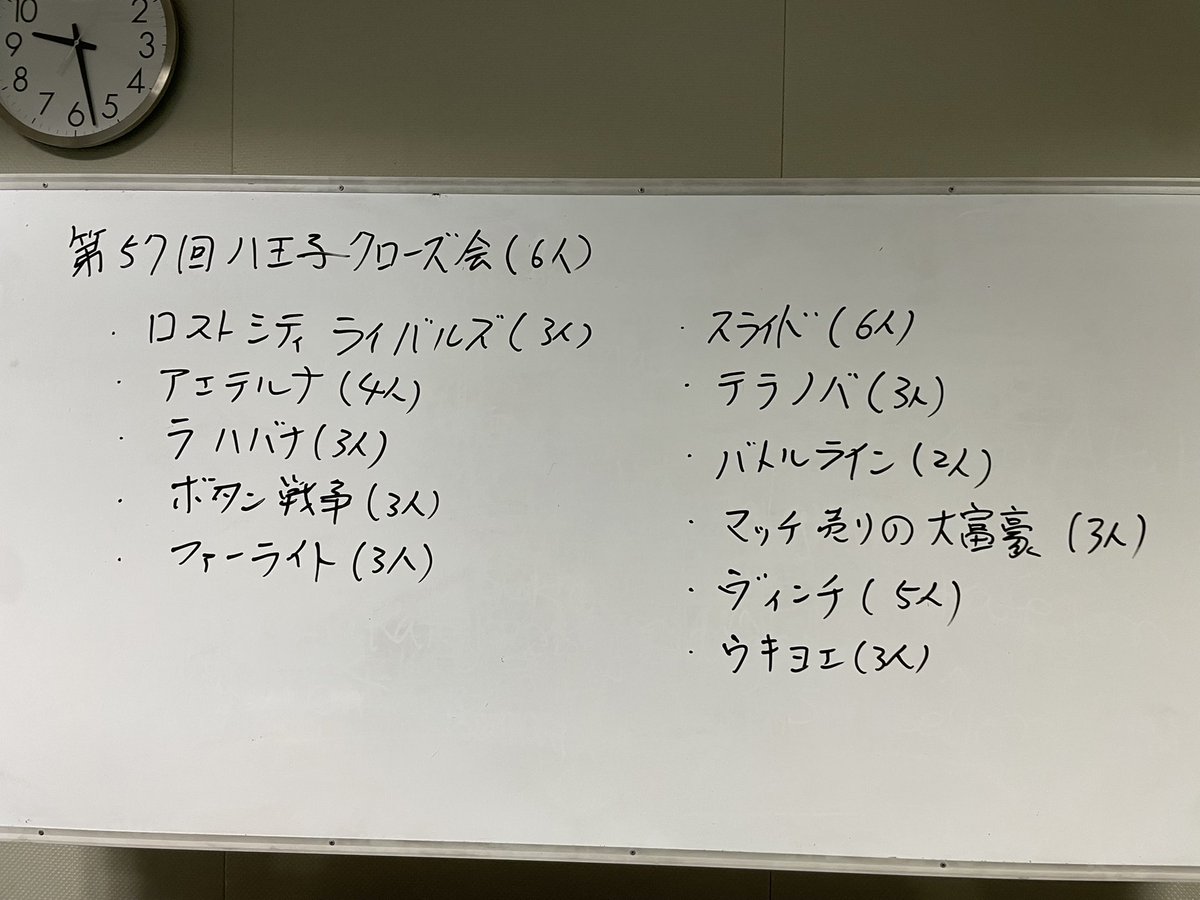 10
2
9
3
8
4
7
6
5
第57回八王子クローズ会(6人)
・ロストシティ ライバルズ(3人)
・アエテルナ(4人)
・ラ ハバナ(3人)
・ボタン戦争(3人)
・ファーライト(3人)
・スライド(6人)
・テラノバ(3人)
・バトルライン(2人)
・マッチ売りの大富豪(3人)
・ヴィンチ(5人)
・ウキヨエ(3人)